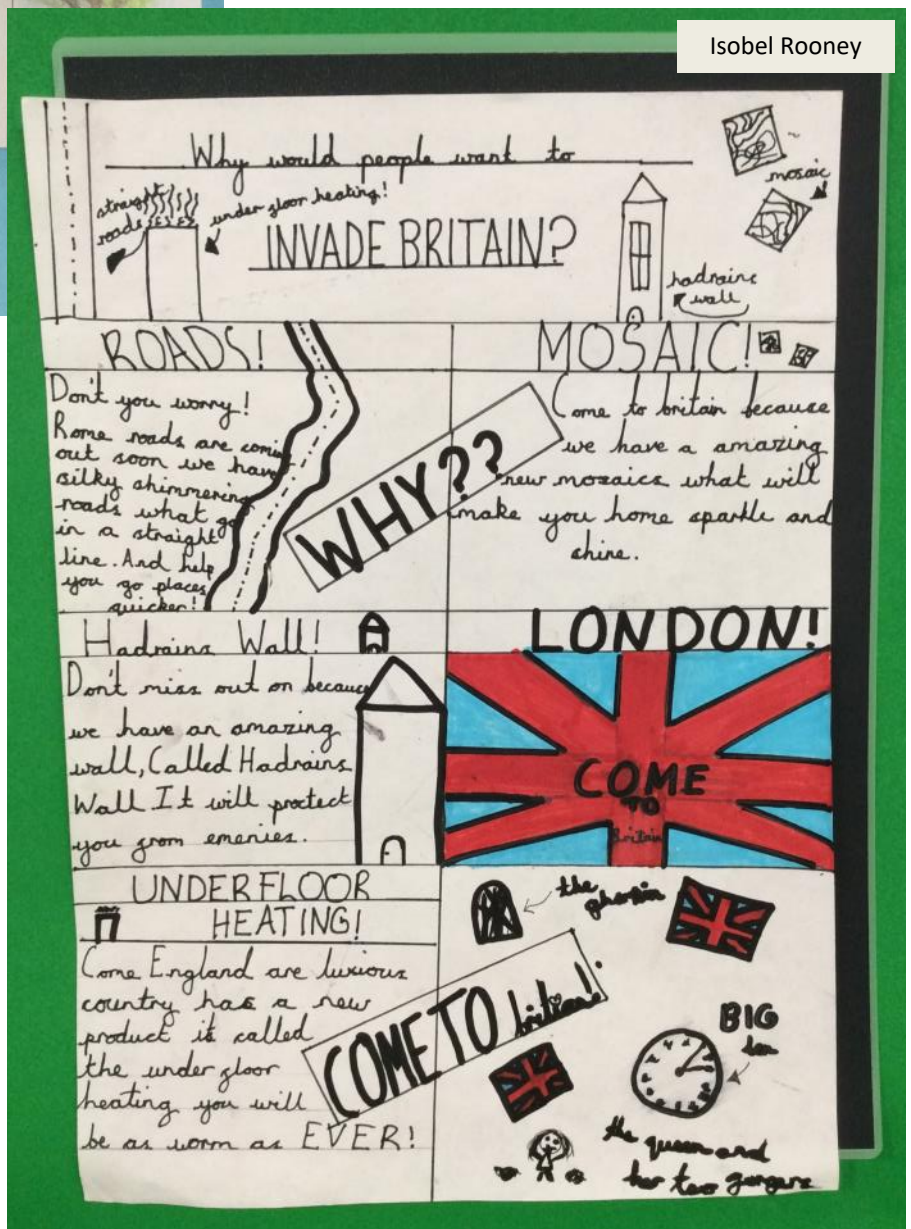 Isobel Rooney
Why would people want to
INVADE BRITAIN?
straight
roads
under gloor heating!
mosaic
hadrains
wall
ROADS!
Don't you worry!
Rome roads are comin
out soon we have
silky shimmering
roads what go
in a straight
line. And help
you go places
quicker!
WHY??
MOSAIC!
Come to britain because
we have a amazing
new mozaics what will
make you home sparkle and
shine.
Hadrains Wall!
Don't miss out on because
we have an amazing
wall, Called Hadrains
Wall It will protect
you grom emenies.
LONDON!
COME
TO
Britain
UNDERFLOOR
HEATING!
Come England are luxious
country has a new
product it called
the under gloor
heating you will
be as worm as EVER!
COME TO
the
BIG
ben
the queen and
her two